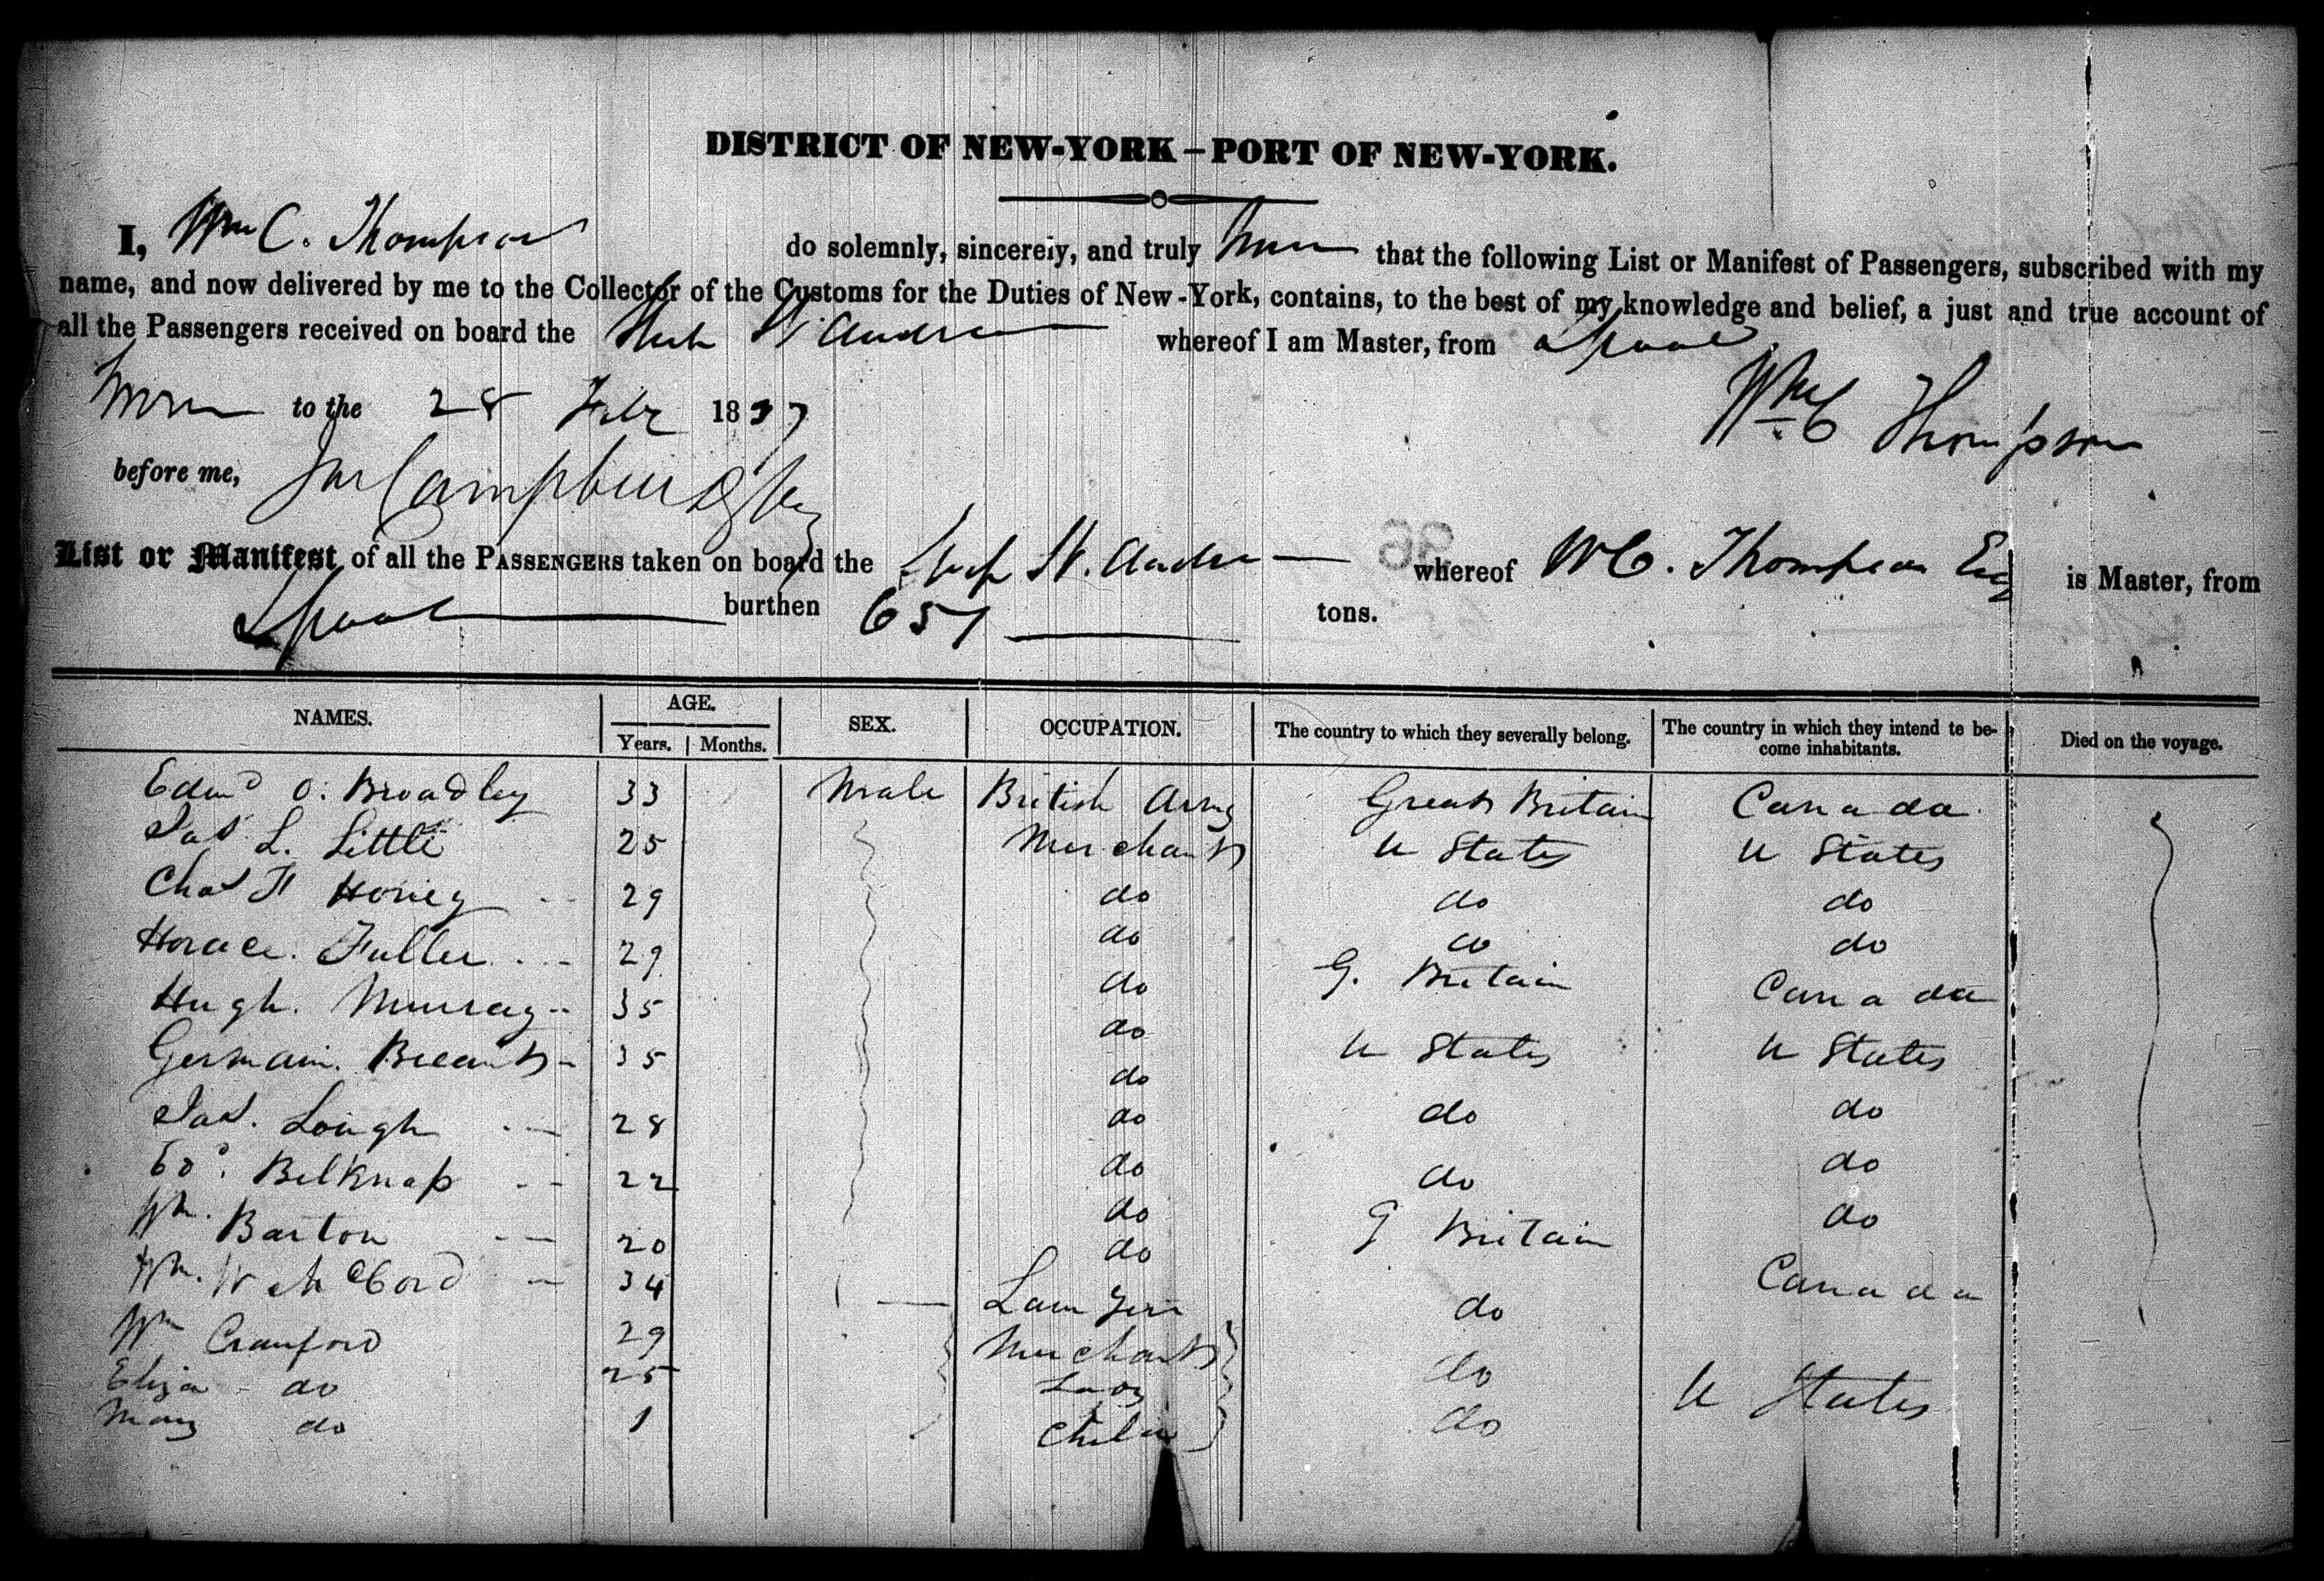 DISTRICT OF NEW-YORK – PORT OF NEW-YORK.
I, Wm C. Thompson do solemnly, sincerely, and truly that the following List or Manifest of Passengers, subscribed with my
name, and now delivered by me to the Collector of the Customs for the Duties of New-York, contains, to the best of my knowledge and belief, a just and true account of
all the Passengers received on board the Ship St Andrew whereof I am Master, from Lpool
to the 28 Feby 1837 Wm C Thompson
before me,
List or Manifest of all the PASSENGERS taken on board the Ship St. Andrew whereof W C. Thompson Esq is Master, from
Lpool burthen 651 tons.
NAMES. AGE. SEX. OCCUPATION. The country to which they severally belong. The country in which they intend to be- Died on the voyage.
Years. Months. come inhabitants.
Edmd O: Broadley 33 Male British Army Great Britain Canada
Jas L. Little 25 Merchants U States U States
Chas F Hovey 29 do do do
Horace. Fuller 29 do do do
Hugh. Murray 35 do G. Britain Canada
Germain. 35 do U States U States
Jas. Lough 28 do do do
Ed. Belknap 22 do do do
Wm. Barton 20 do G Britain do
Wm. Cord 34 Lawyer do Canada
Wm Crauford 29 Merchants do
Eliza do 25 Lady do U States
Mary do 1 Child